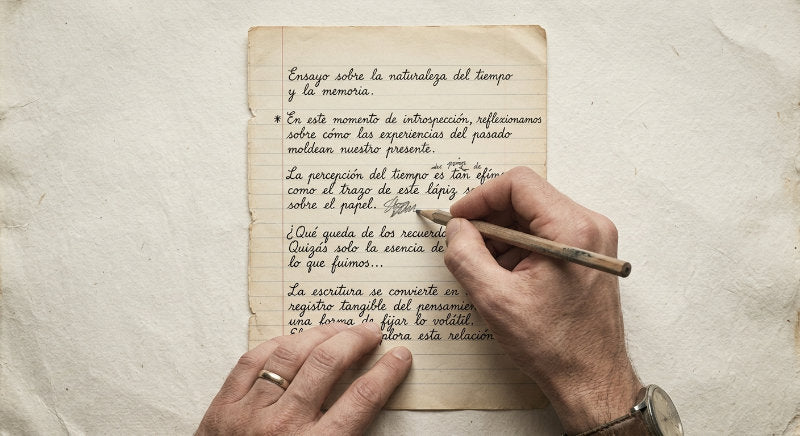 Ensayo sobre la naturaleza del tiempo
y la memoria.
* En este momento de introspección, reflexionamos
sobre cómo las experiencias del pasado
moldean nuestro presente.
La percepción del tiempo es tan
como el trazo de este lápiz
sobre el papel.
¿Qué queda de los
Quizás solo la esencia de
lo que fuimos...
La escritura se convierte en
registro tangible del
una forma de fijar lo volátil.
esta relación